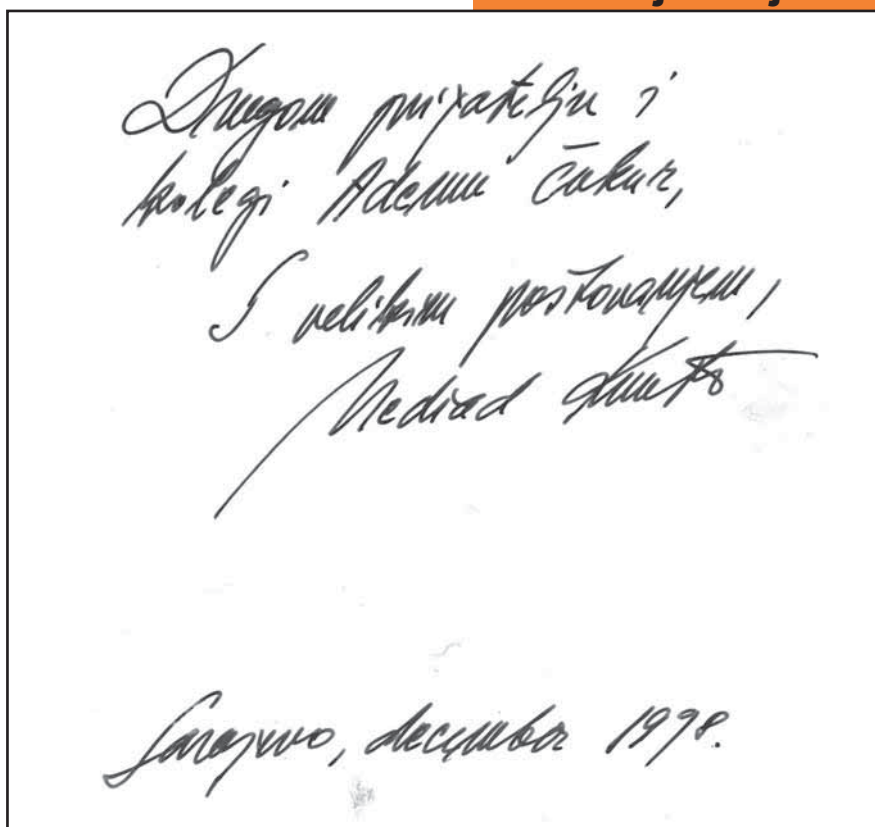 Dragom prijatelju i
kolegi Ademu Čukur,
S velikim poštovanjem,
Nedžad
Sarajevo, decembar 1998.